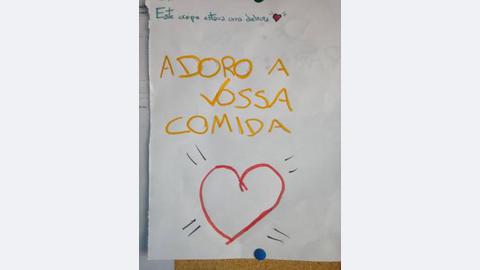 Este crepe estava uma delícia "❤"
ADORO A
VOSSA
COMIDA